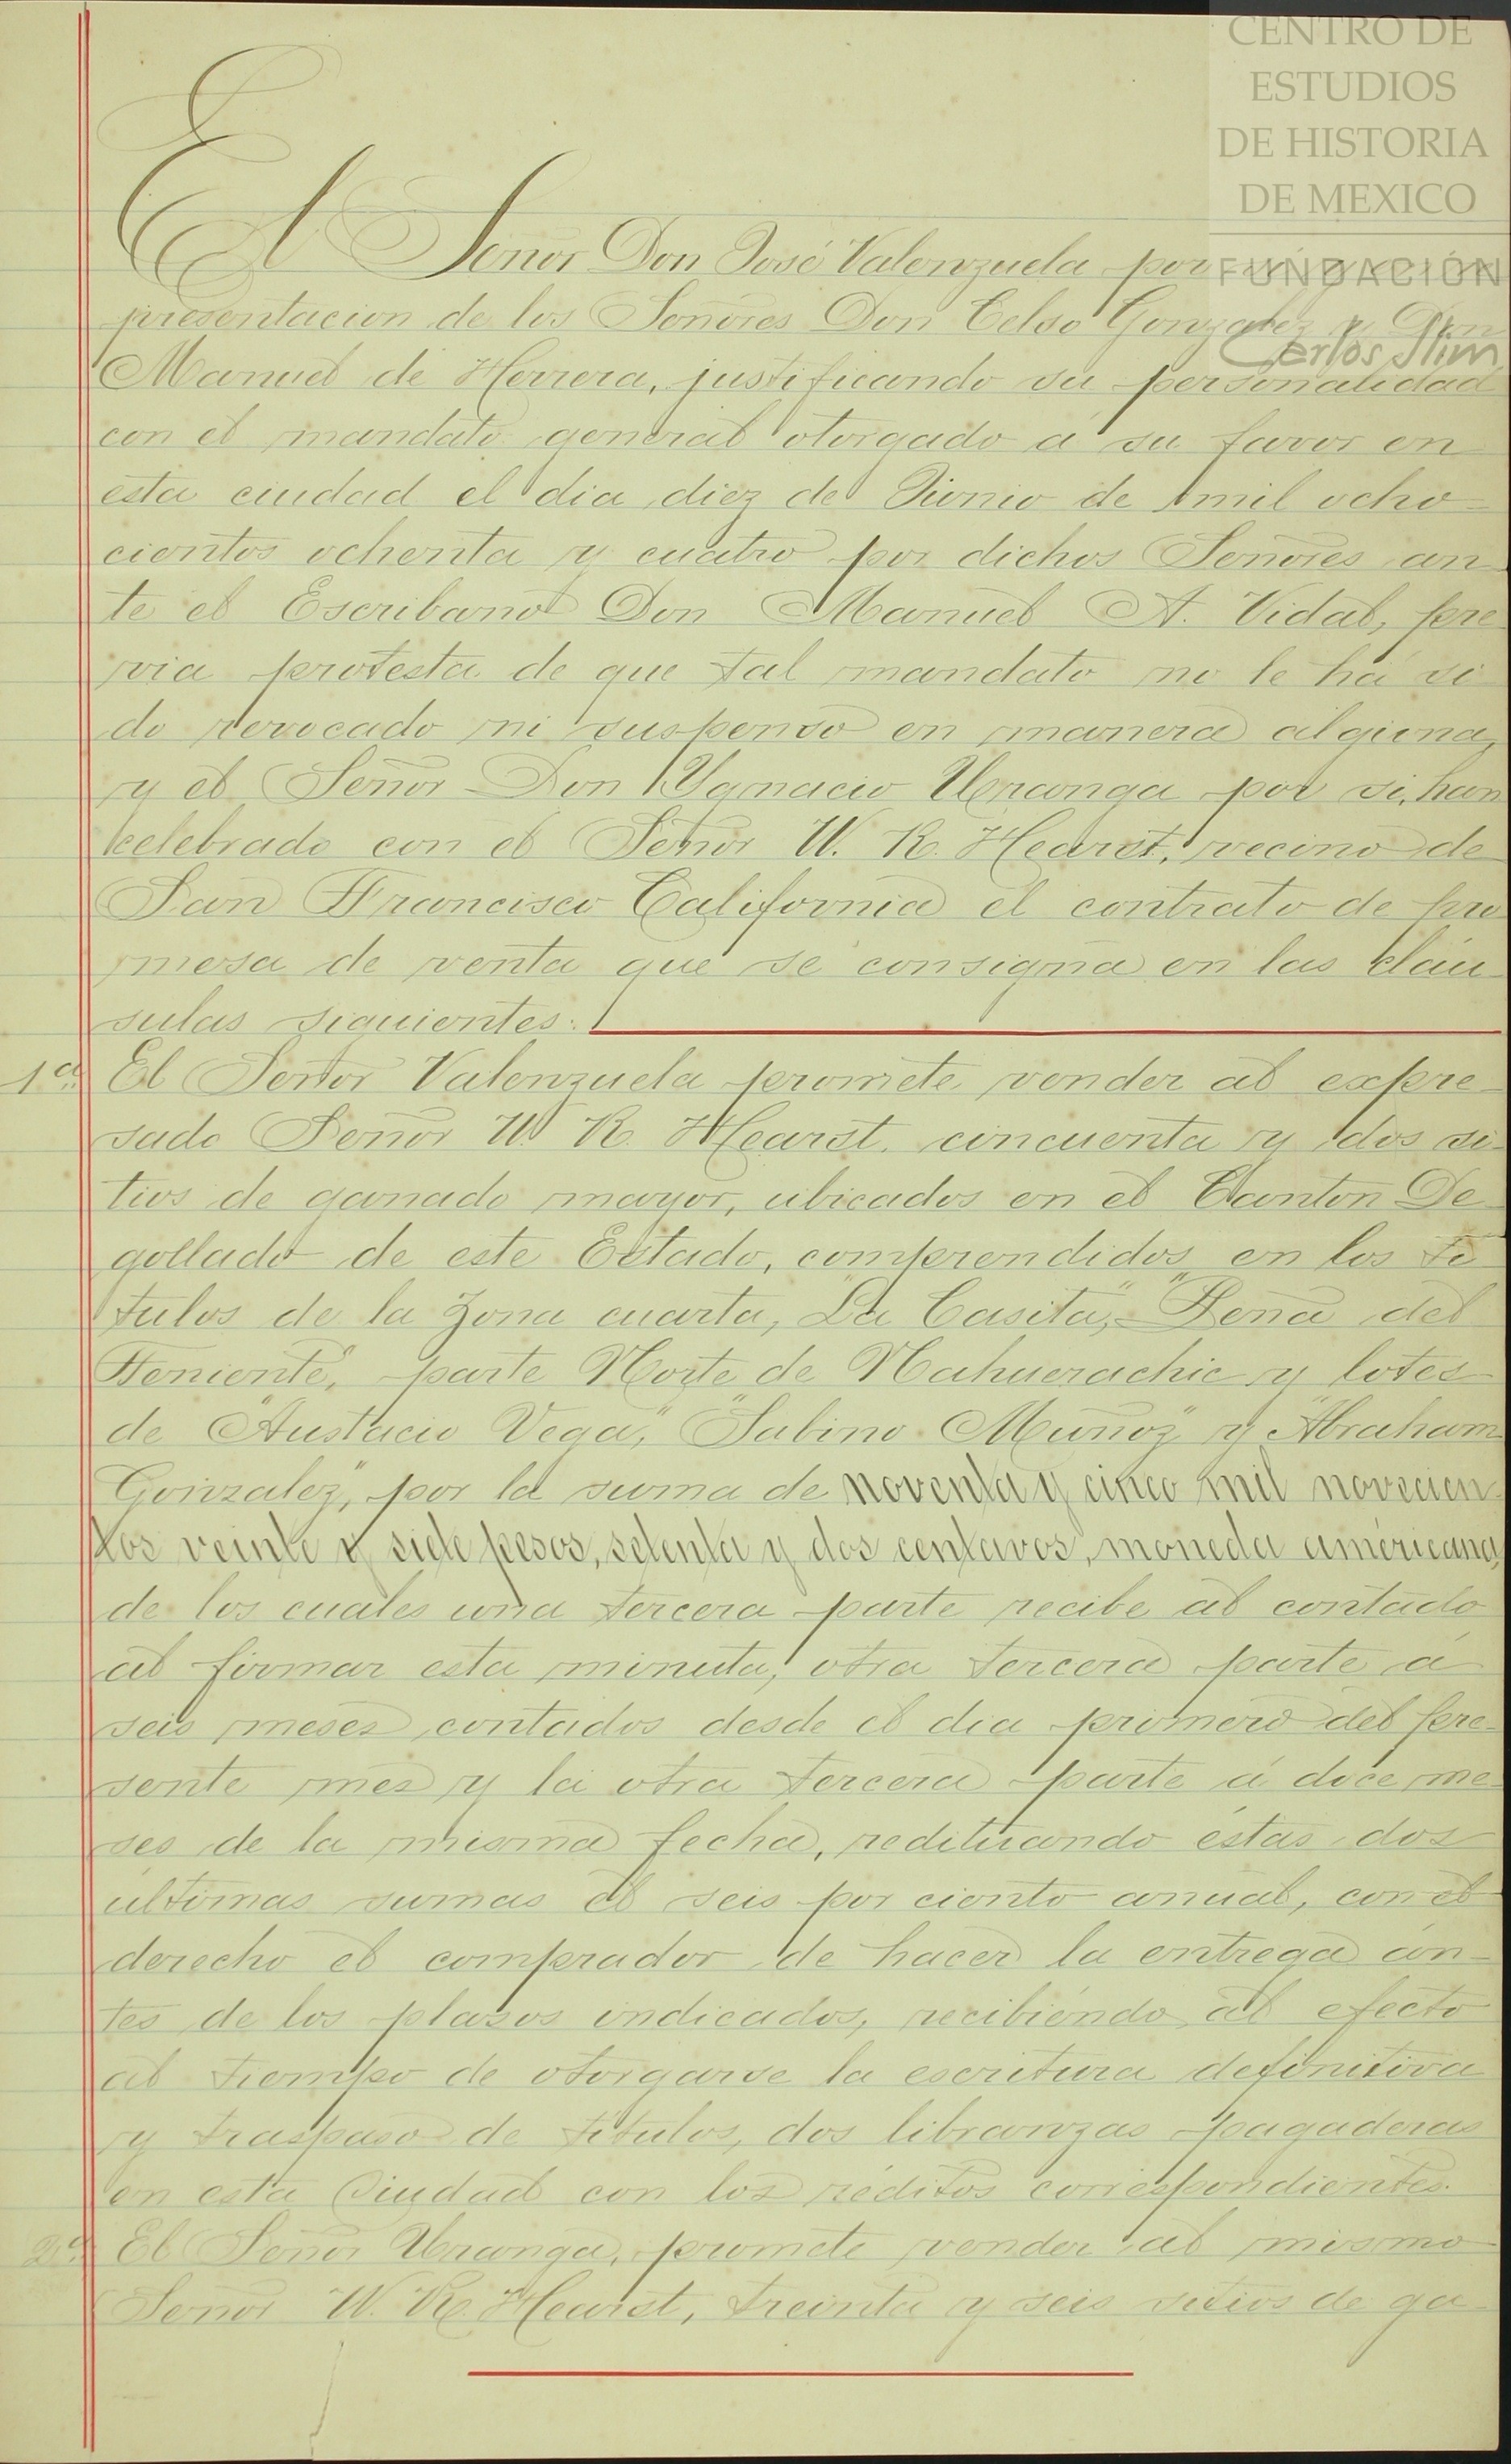 CENTRO DE
ESTUDIOS
DE HISTORIA
DE MEXICO
FUNDACIÓN
Carlos Slim
El Señor Don José Valenzuela por
presentacion de los Señores Don Celso Gonzalez y Don
Manuel de Herrera, justificando su personalidad
con el mandato general otorgado á su favor en
esta ciudad el dia diez de Junio de mil ocho-
cientos ochenta y cuatro por dichos Señores an
te el Escribano Don Manuel A. Vidal, pre
via protesta de que tal mandato no le há si
do revocado ni suspenso en manera alguna,
y el Señor Don Ygnacio Uranga por si, han
celebrado con el Señor W. R. Hearst, vecino de
San Francisco California el contrato de pro
mesa de venta que se consigna en las cláu
sulas siguientes:
1ª El Señor Valenzuela promete vender al expre-
sado Señor W. R. Hearst. cincuenta y dos si-
tios de ganado mayor, ubicados en el Canton De
gollado de este Estado, comprendidos en los tí
tulos de la Zona cuarta, "La Casita," "Peña del
Teniente," parte Norte de Nahuerachic y lotes
de "Austacio Vega," "Sabino Muñoz" y "Abraham
Gonzalez," por la suma de noventa y cinco mil novecien
tos veinte y siete pesos, setenta y dos centavos, moneda américana,
de los cuales una tercera parte recibe al contado
al firmar esta minuta, otra tercera parte á
seis meses contados desde el dia primero del pre-
sente mes y la otra tercera parte á doce me-
ses de la misma fecha, redituando éstas dos
últimas sumas el seis por ciento anual, con el
derecho el comprador de hacer la entrega án-
tes de los plazos indicados, recibiéndo al efecto
al tiempo de otorgarse la escritura definitiva
y traspaso de títulos, dos libranzas pagaderas
en esta Ciudad con los réditos correspondientes.
2ª El Señor Uranga, promete vender al mismo
Señor W. R. Hearst, treinta y seis sitios de ga-